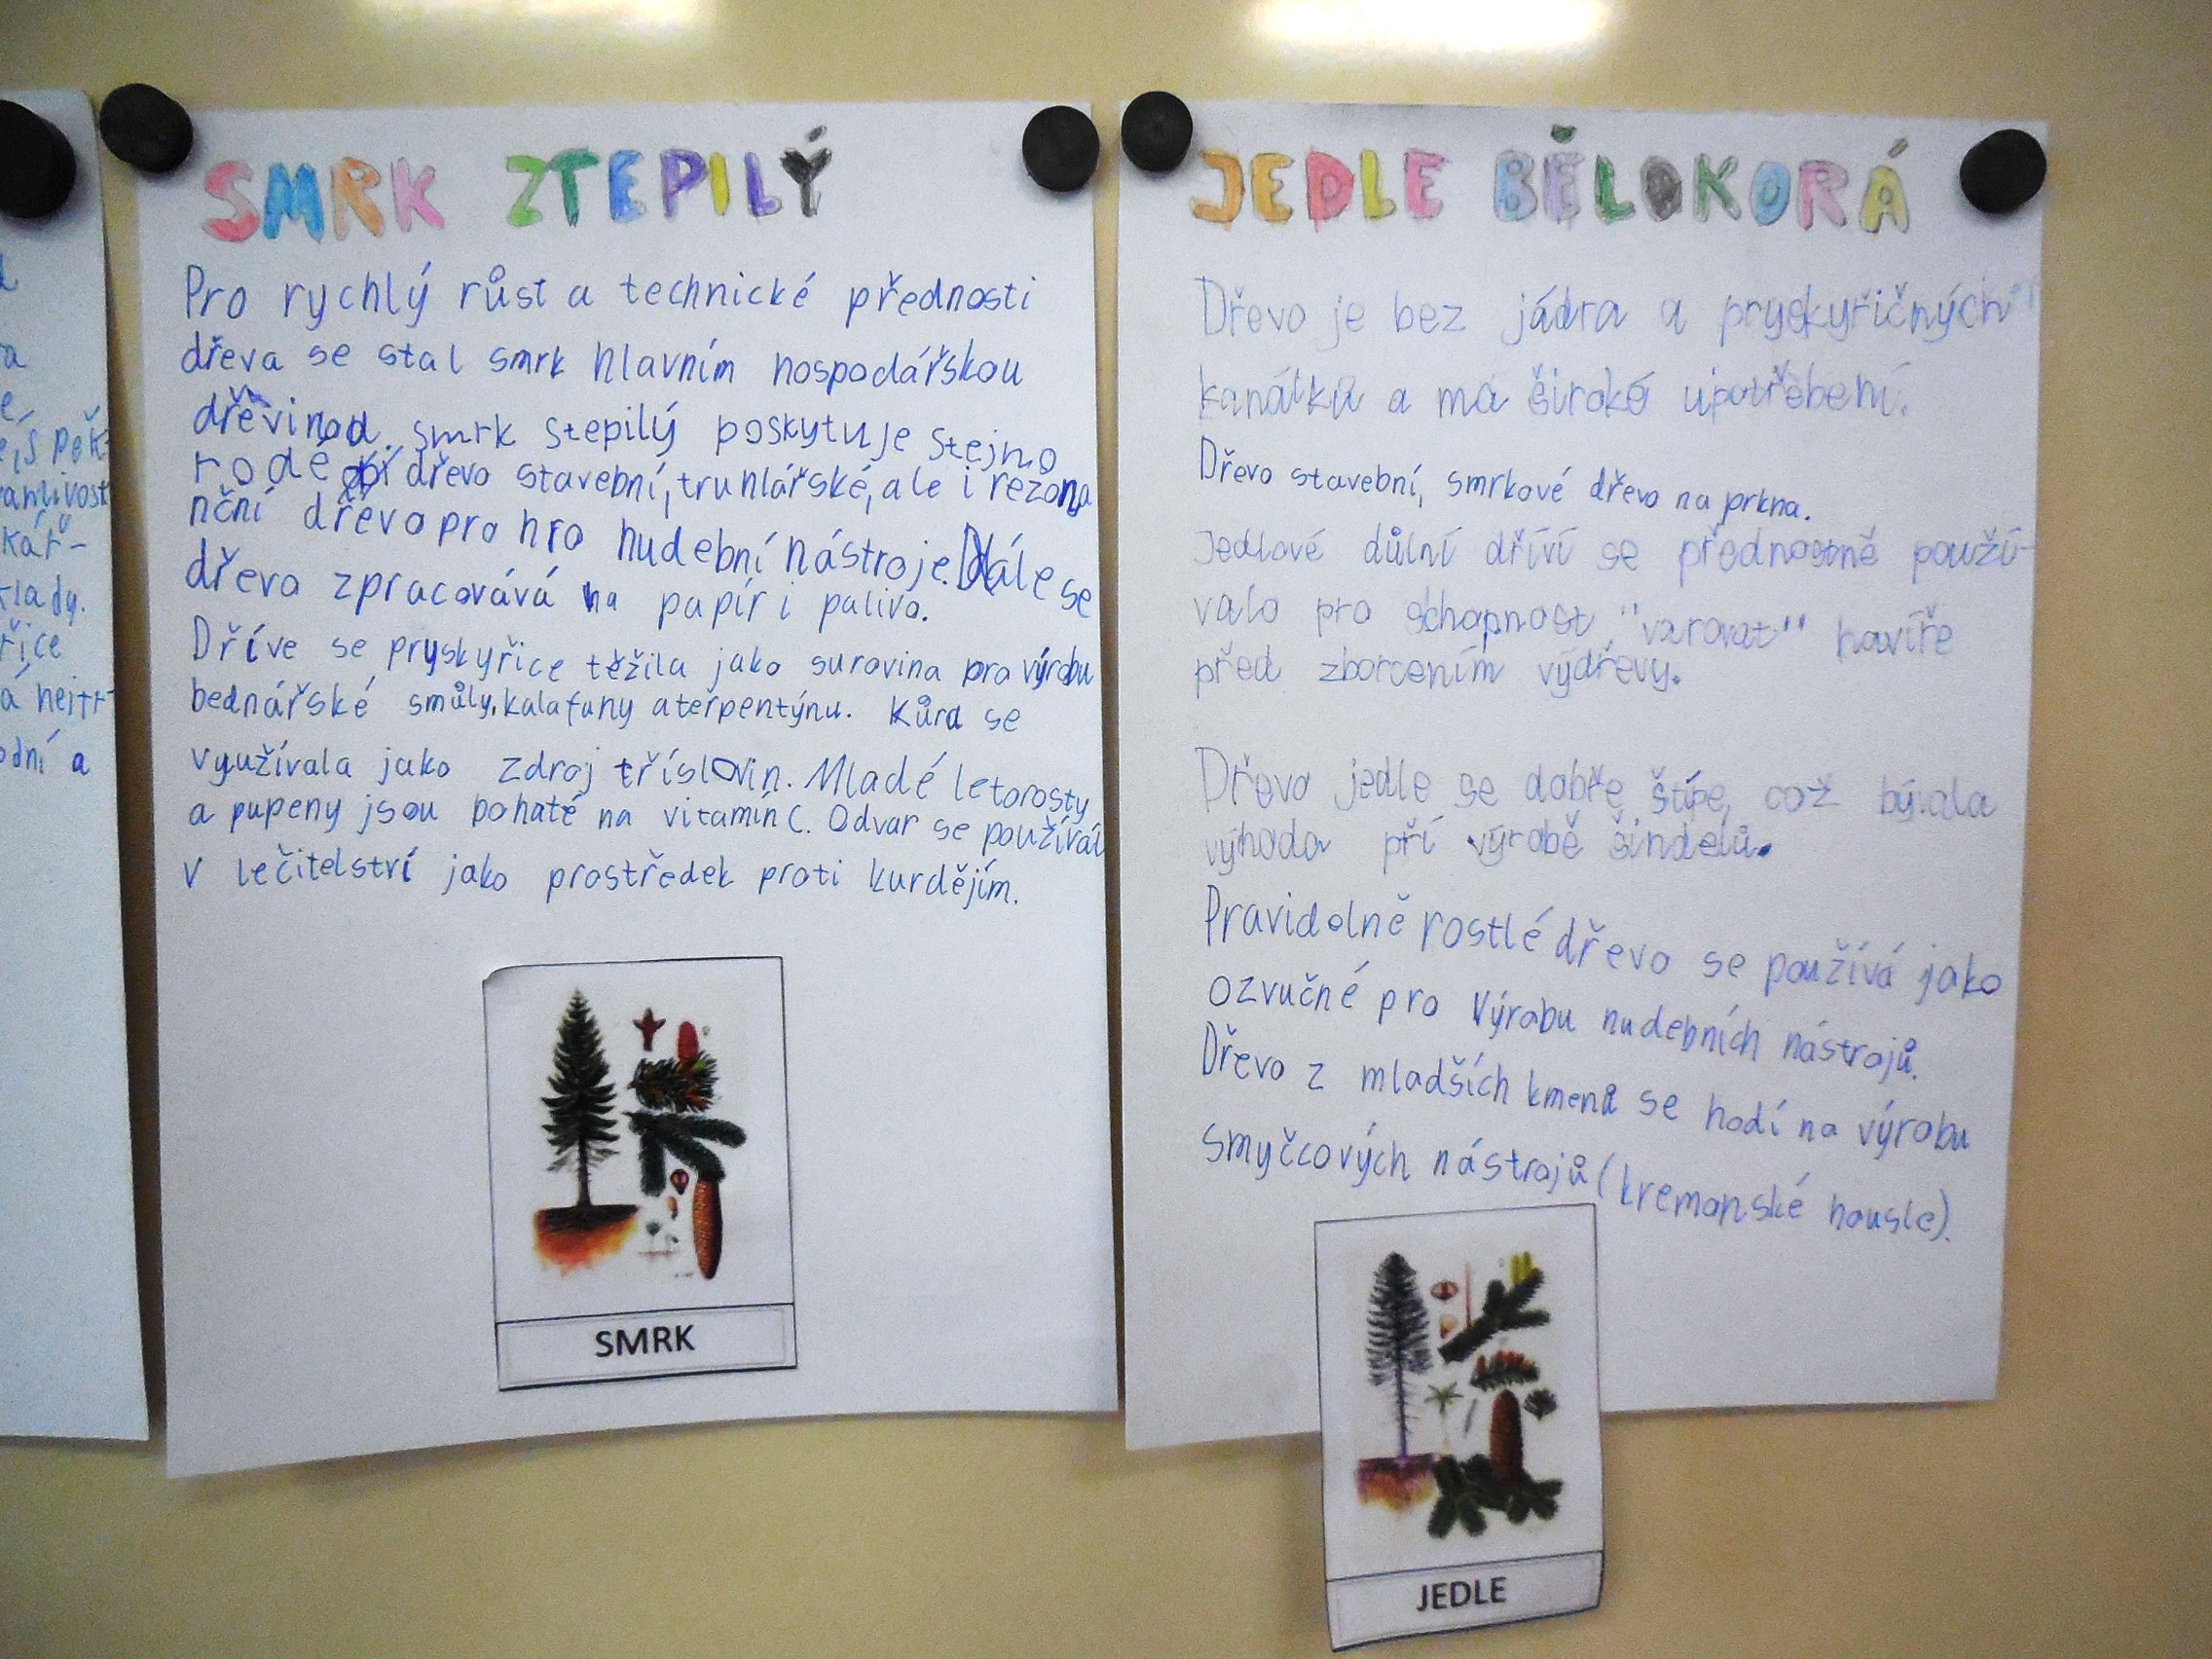 a
e
kář-
klady.
řice
odní a
SMRK ZTEPILÝ
Pro rychlý růst a technické přednosti
dřeva se stal smrk hlavním hospodářskou
dřevinod. smrk stepilý poskytuje stejno
rodé dřevo stavební, truhlářské, ale i rezona
nční dřevo pro hro hudební nástroje. Dále se
dřevo zpracovává na papír i palivo.
Dříve se pryskyřice těžila jako surovina pro výrobu
bednářské smůly, kalafuny a terpentýnu. Kůra se
využívala jako zdroj tříslovin. Mladé letorosty
a pupeny jsou bohaté na vitamín C. Odvar se používal
v lečitelství jako prostředek proti kurdějím.
SMRK
JEDLE BĚLOKORÁ
Dřevo je bez jádra a pryskyřičných
kanálků a má široké upotřebení.
Dřevo stavební, smrkové dřevo na prkna.
Jedlové důlní dříví se přednostně použí-
valo pro schopnost "varovat" havíře
před zborcením výdřevy.
Dřevo jedle se dobře štípe, což bývala
výhoda při výrobě šindelů.
Pravidelně rostlé dřevo se používá jako
ozvučné pro Výrobu hudebních nástrojů.
Dřevo z mladších kmenů se hodí na výrobu
smyčcových nástrojů (kremonské housle).
JEDLE